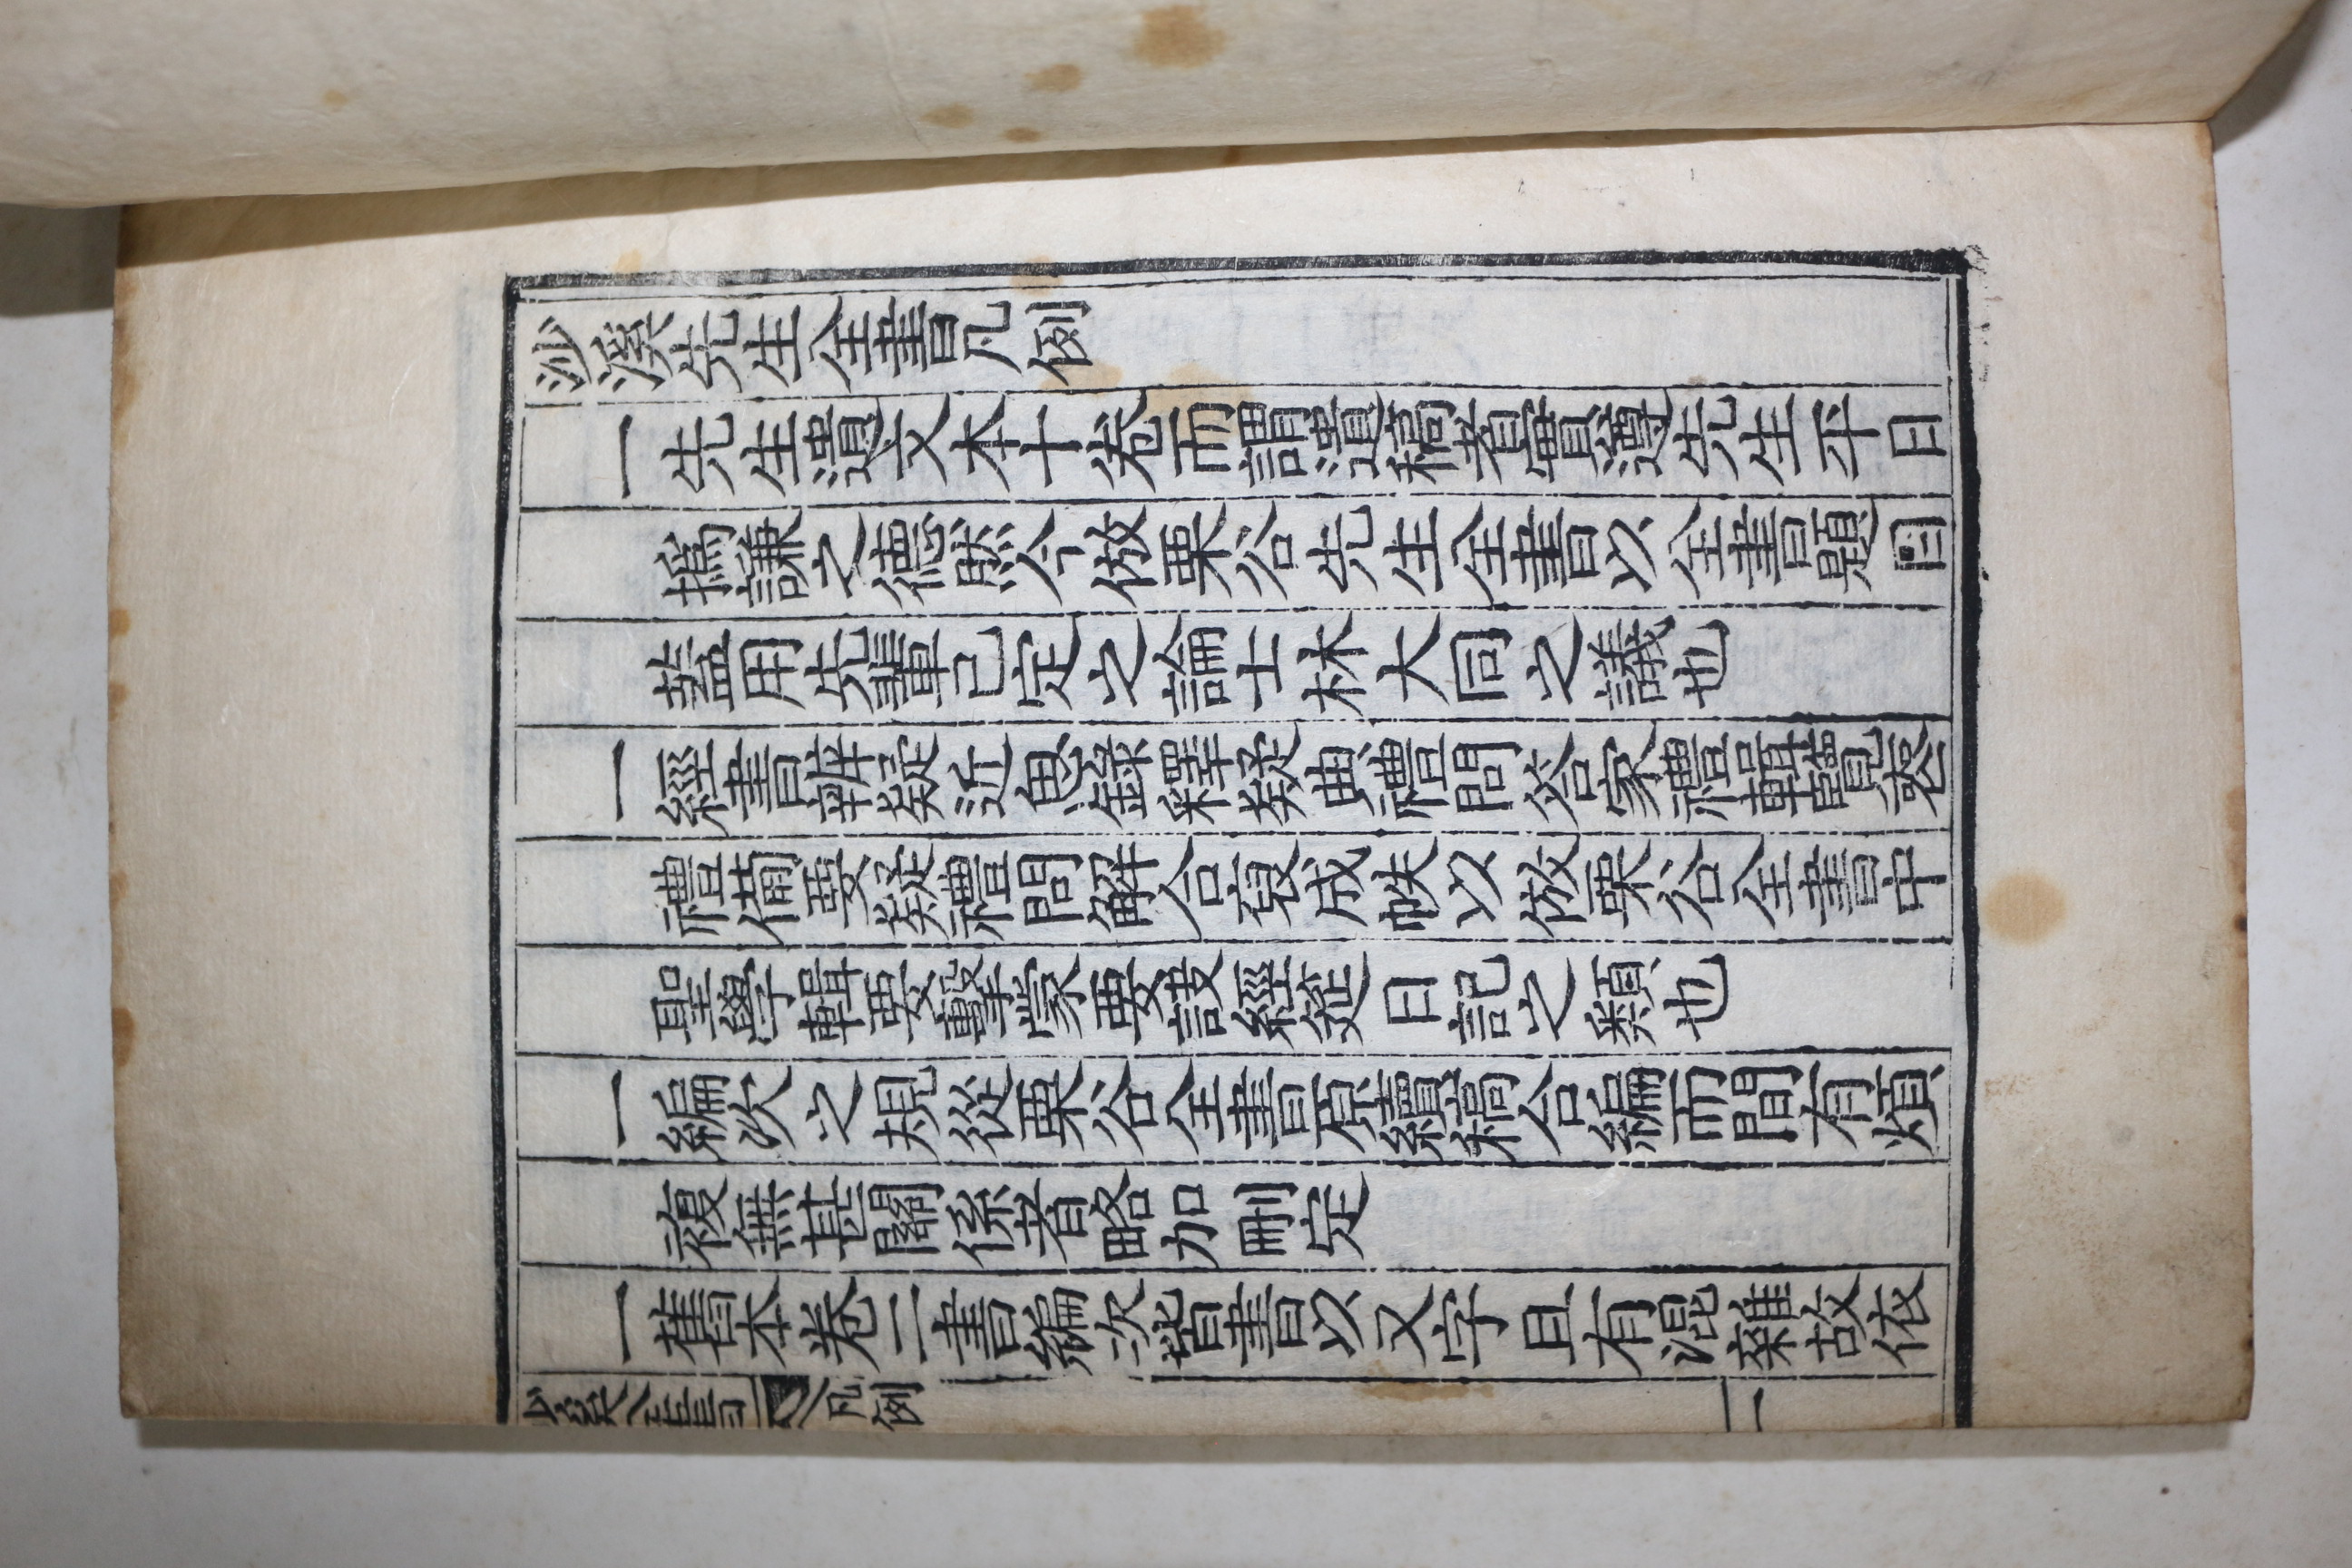 沙溪先生全書凡例
一先生遺文本十卷而謂遺稿者實遵先生平日
撝謙之德然今倣栗谷先生全書以全書題目
蓋用先輩已定之論士林大同之議也
一經書辨疑近思錄釋疑典禮問答家禮輯覽喪
禮備要疑禮問解合裒成帙以倣栗谷全書中
聖學輯要擊蒙要訣經筵日記之類也
一編次之規從栗谷全書原續稿合編而間有煩
複無甚關係者略加刪定
一舊本卷二書編次皆書以又字且有混雜故依
沙溪全書 凡例 一